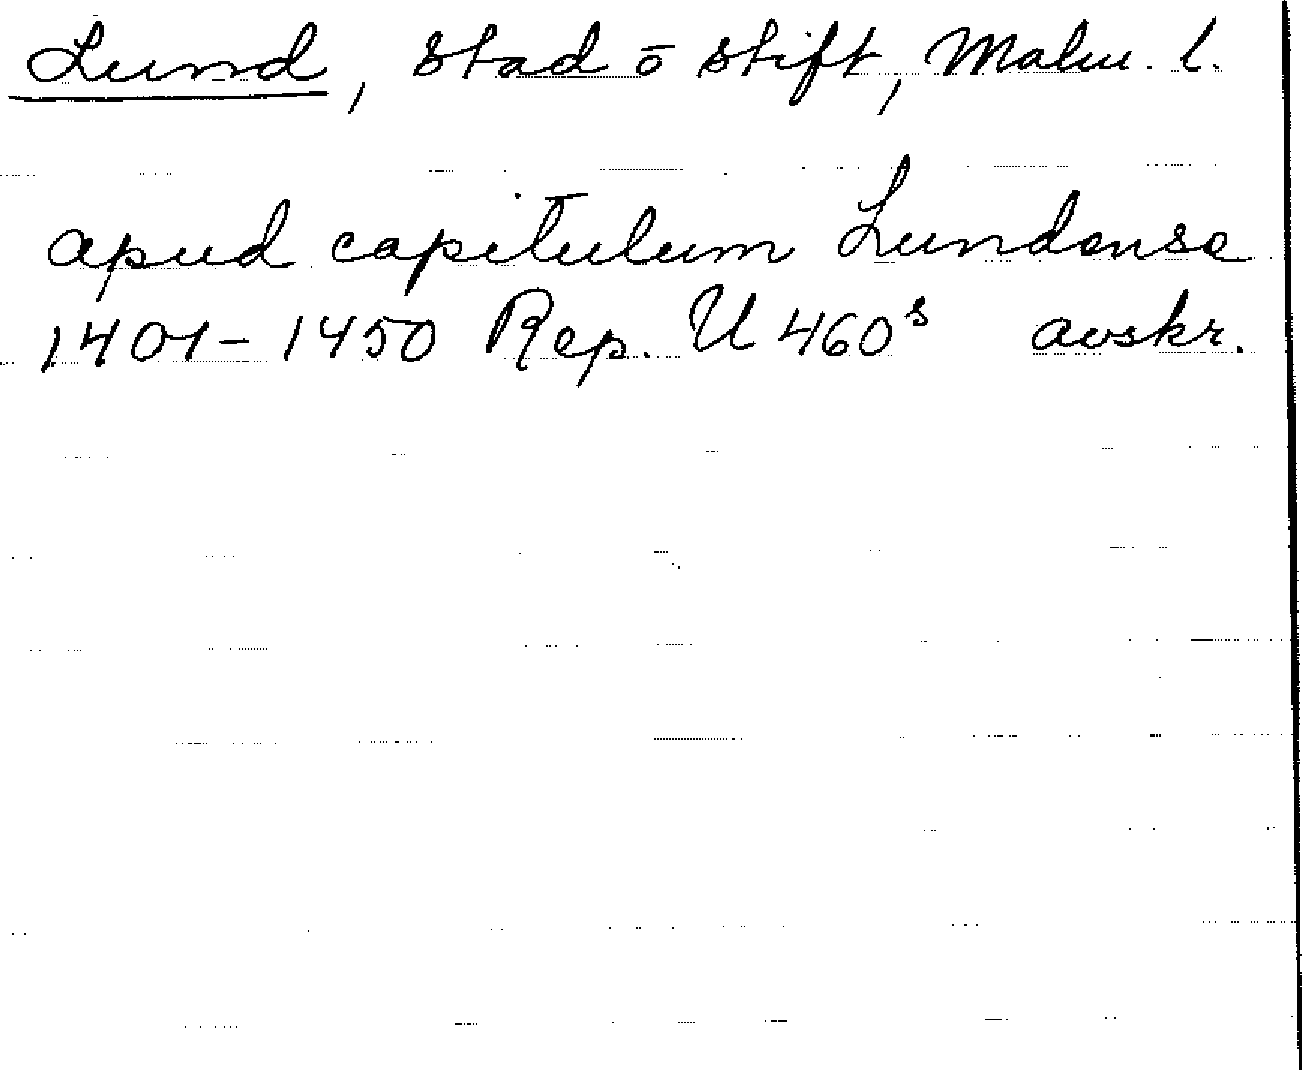 Lund, stad ō stift, Malm. l.
apud capitulum Lundense
1401-1450 Rep. U 460ˢ avskr.